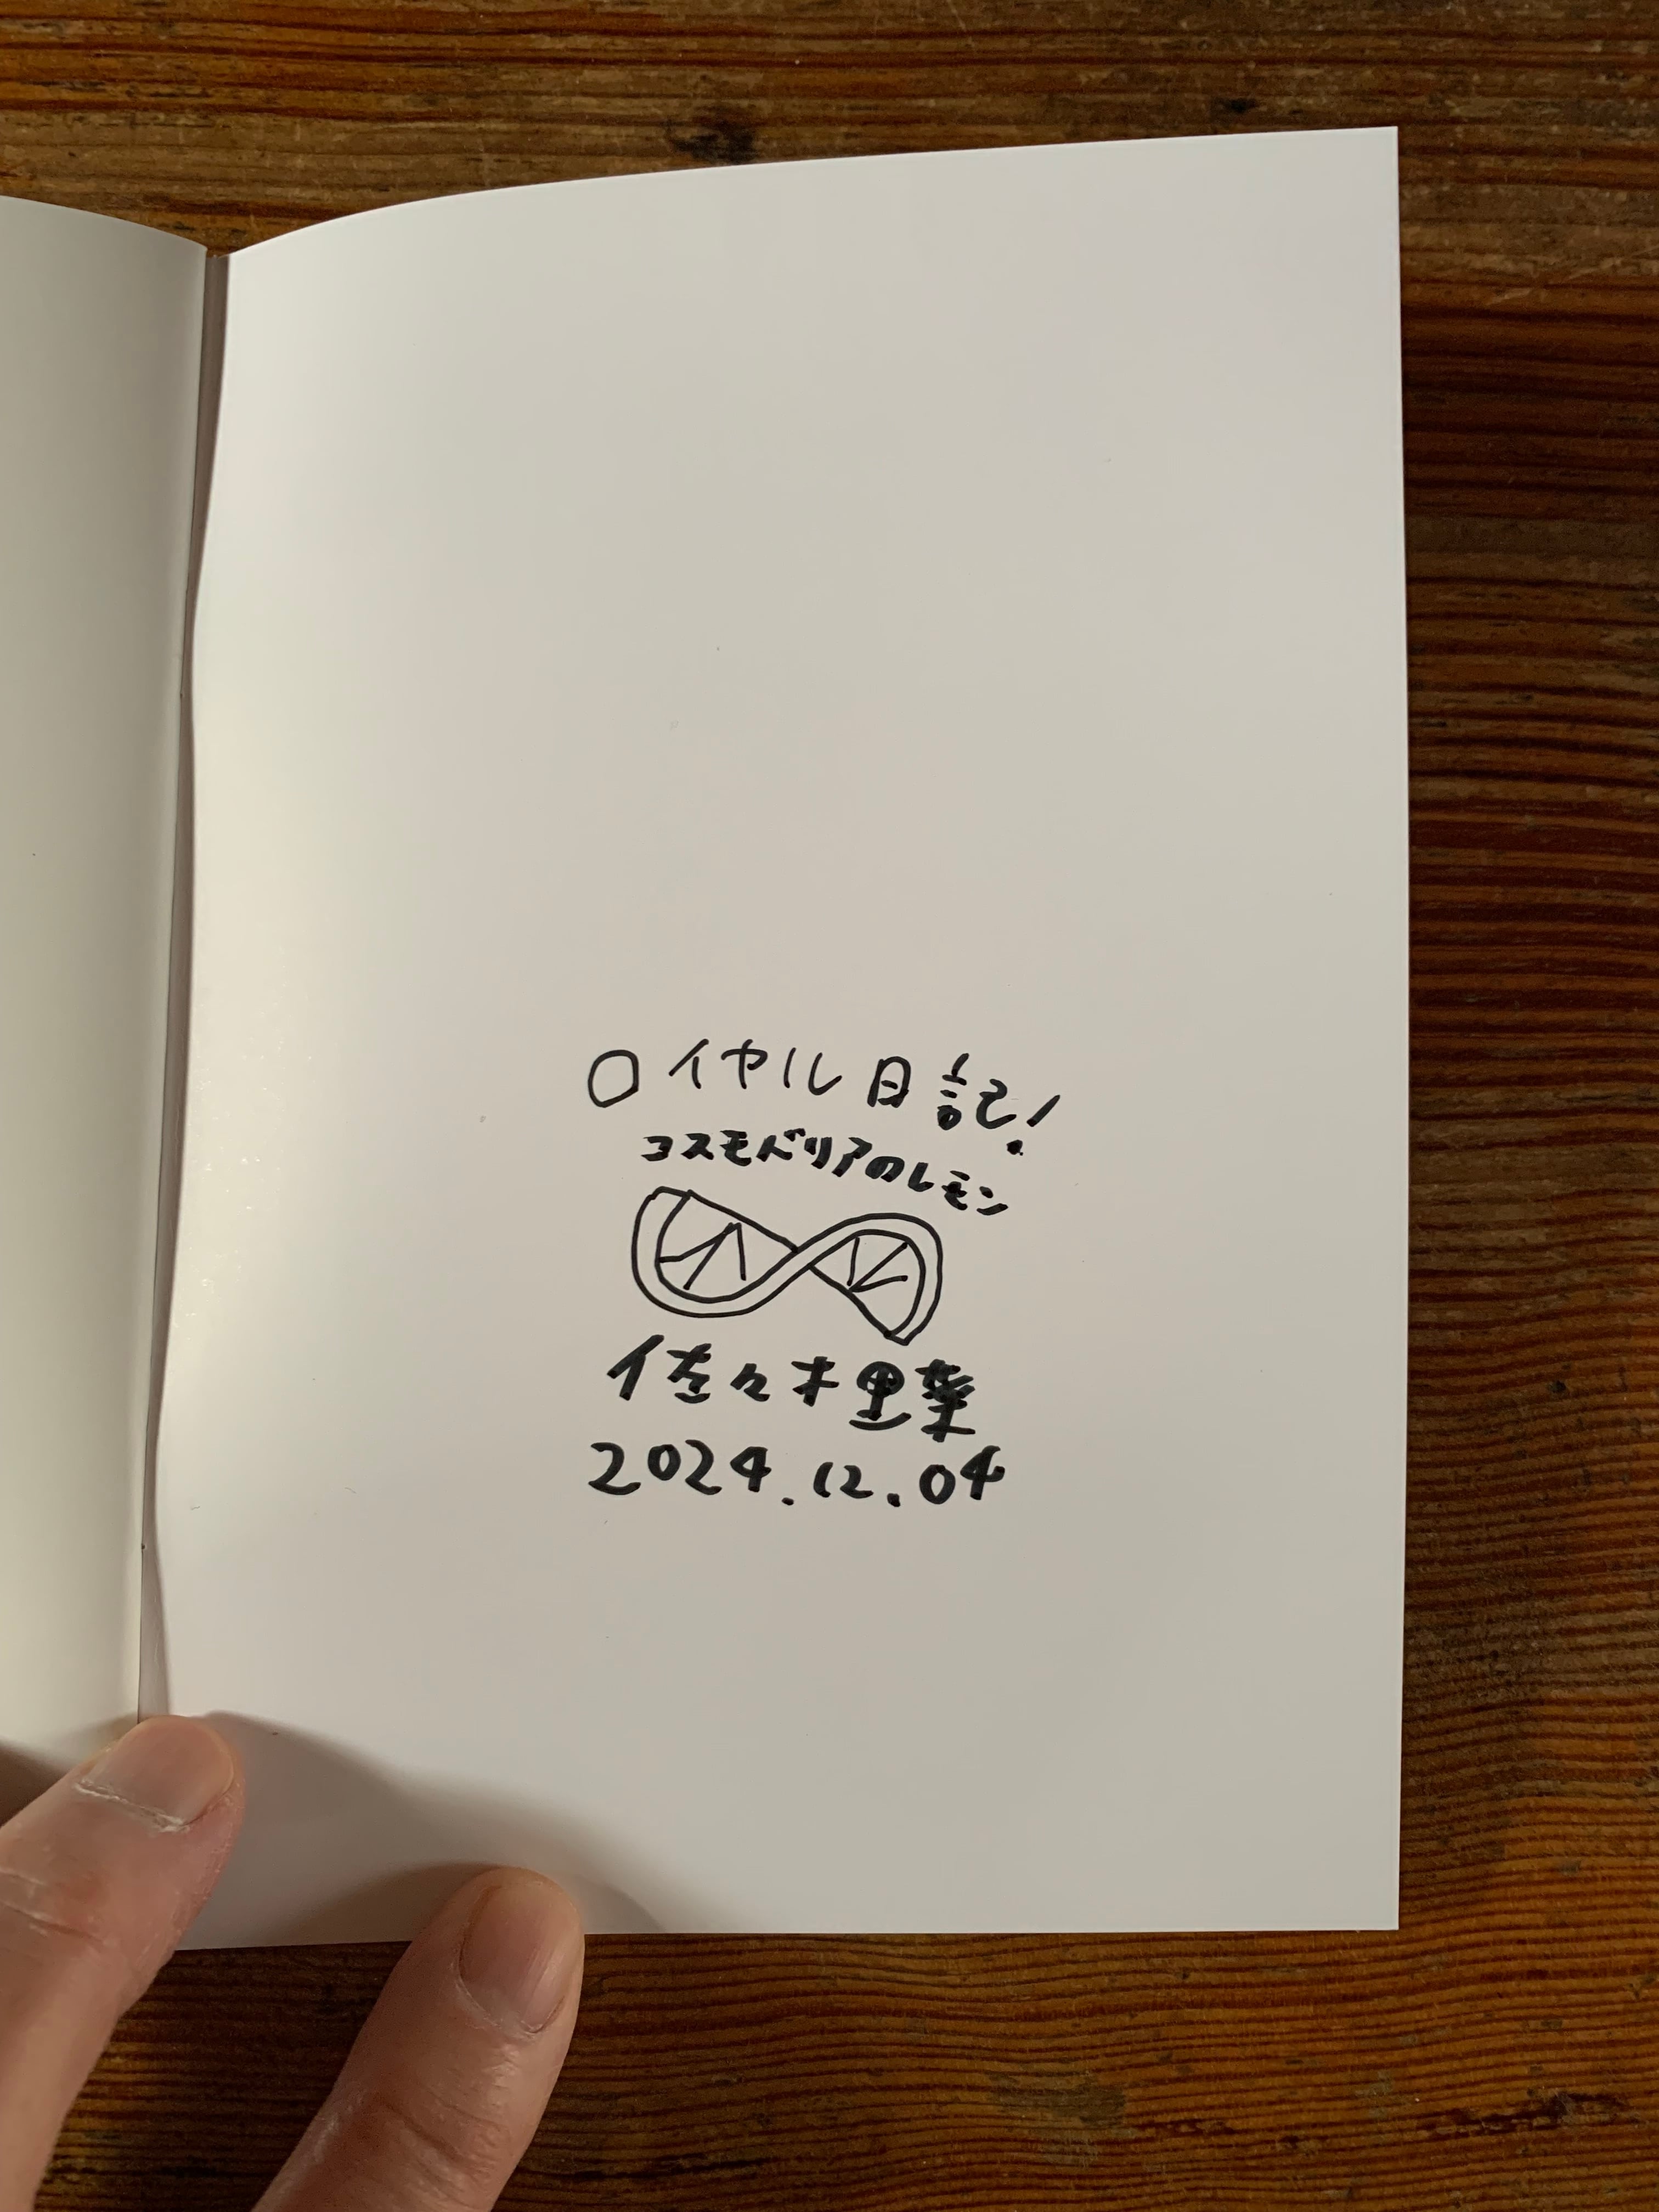 ロイヤル日記!
コスモドリアのレモン
佐々木里菜
2024.12.04